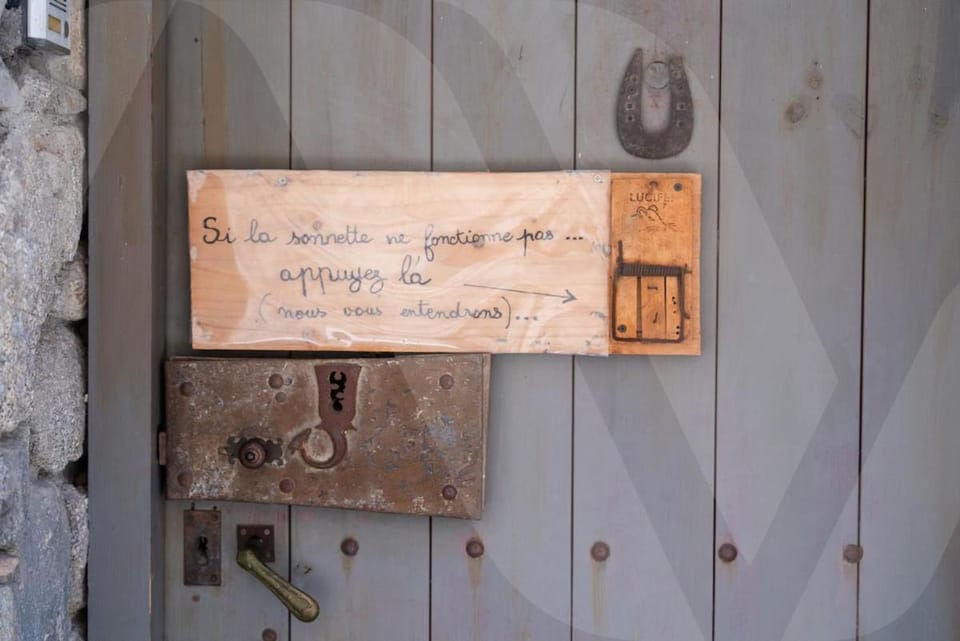 Si la sonnette ne fonctionne pas ...
appuyez là
(nous vous entendrons)...
LUCIFER